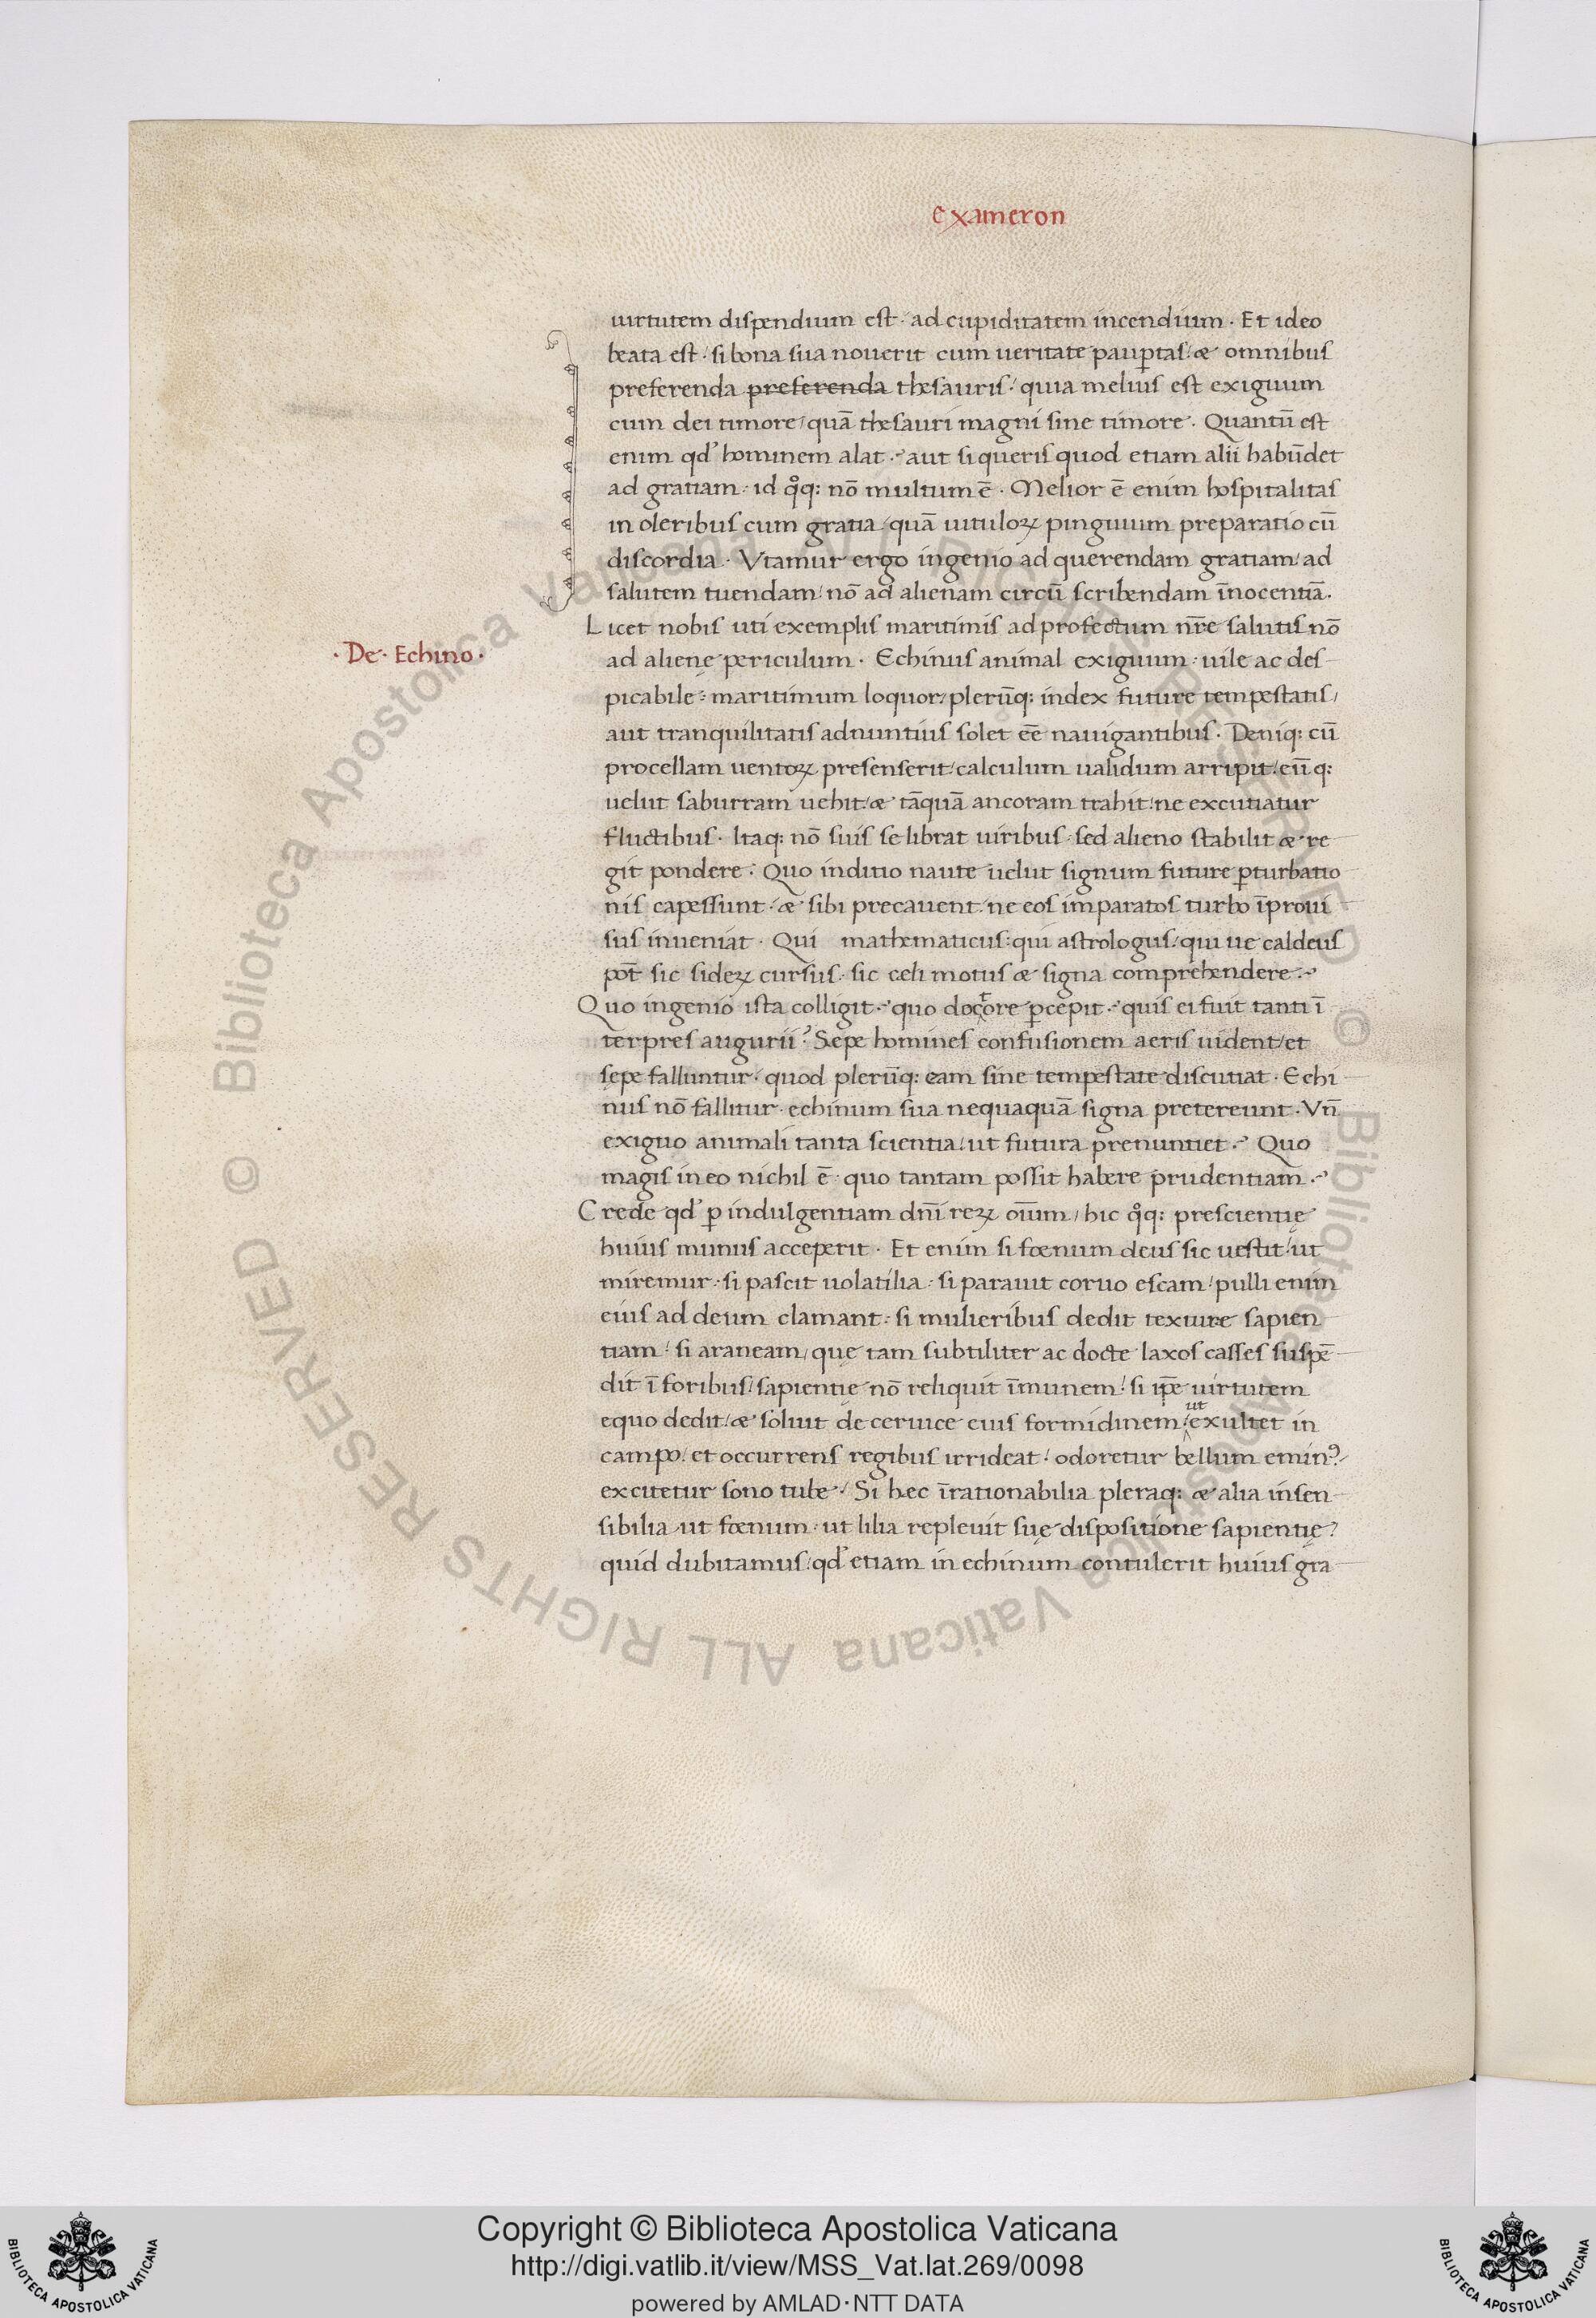 exameron
uirtutem dispendium est · ad cupiditatem incendium · Et ideo
beata est / si bona sua nouerit cum ueritate paup̱tas / & omnibus
preferenda preferenda thesauris / quia melius est exiguum
cum dei timore / quā thesauri magni sine timore · Quantū est
enim qđ hominem alat ·' aut si queris quod etiam alii habūdet
ad gratiam · id qͦq: nō multum ē · Melior ē enim hospitalitas
in oleribus cum gratia / quā uituloꝝ pinguium preparatio cū
discordia · Vtamur ergo ingenio ad querendam gratiam / ad
salutem tuendam / nō ad alienam circū scribendam īnocentiā ·
Licet nobis uti exemplis maritimis ad profectum nr̄e salutis nō
· De · Echino ·
ad alienę periculum · Echinus animal exiguum · uile ac des
picabile : maritimum loquor / plerūq: index future tempestatis /
aut tranquilitatis adnuntius solet eē nauigantibus · Deniq: cū
procellam uentoꝝ presenserit / calculum ualidum arripit / eūq:
uelut saburram uehit / & tāquā ancoram trahit / ne excutiatur
fluctibus · Itaq: nō suis se librat uiribus · sed alieno stabilit & re
git pondere · Quo inditio naute uelut signum future ꝑturbatio
nis capessunt / & sibi precauent / ne eos imparatos turbo īproui
sus inueniat · Qui mathematicus : qui astrologus / qui ue caldeus
pōt sic sideꝝ cursus · sic celi motus & signa comprehendere ·'
Quo ingenio ista colligit ·' quo doctore ꝑcepit ·' quis ei fuit tanti ī
terpres augurii ? Sepe homines confusionem aeris uident / et
sępe falluntur · quod plerūq: eam sine tempestate discutiat · Echi
nus nō fallitur · echinum sua nequaquā signa pretereunt · Vn̄
exiguo animali tanta scientia / ut futura prenuntiet ·' Quo
magis in eo nichil ē · quo tantam possit habere prudentiam ·'
Crede qđ ꝑ indulgentiam dn̄i reꝝ oīum / hic qͦq: prescientię
huius munus acceperit · Et enim si fœnum deus sic uestit / ut
miremur · si pascit uolatilia · si parauit coruo escam / pulli enim
eius ad deum clamant · si mulieribus dedit texture sapien
tiam / si araneam / quę tam subtiliter ac docte laxos casses suspē
dit ī foribus / sapientię nō reliquit īmunem / si ip̄e uirtutem
equo dedit / & soluit de ceruice eius formidinem / ut exultet in
campo / et occurrens regibus irrideat / odoretur bellum eminꝰ /
excitetur sono tube / Si hec īrationabilia pleraq: & alia insen
sibilia ut fœnum · ut lilia repleuit suę dispositione sapientię ?
quid dubitamus / qđ etiam in echinum contulerit huius gra
Copyright © Biblioteca Apostolica Vaticana
http://digi.vatlib.it/view/MSS_Vat.lat.269/0098
powered by AMLAD·NTT DATA
BIBLIOTECA APOSTOLICA VATICANA
BIBLIOTECA APOSTOLICA VATICANA
© Biblioteca Apostolica Vaticana ALL RIGHTS RESERVED
© Biblioteca Apostolica Vaticana ALL RIGHTS RESERVED